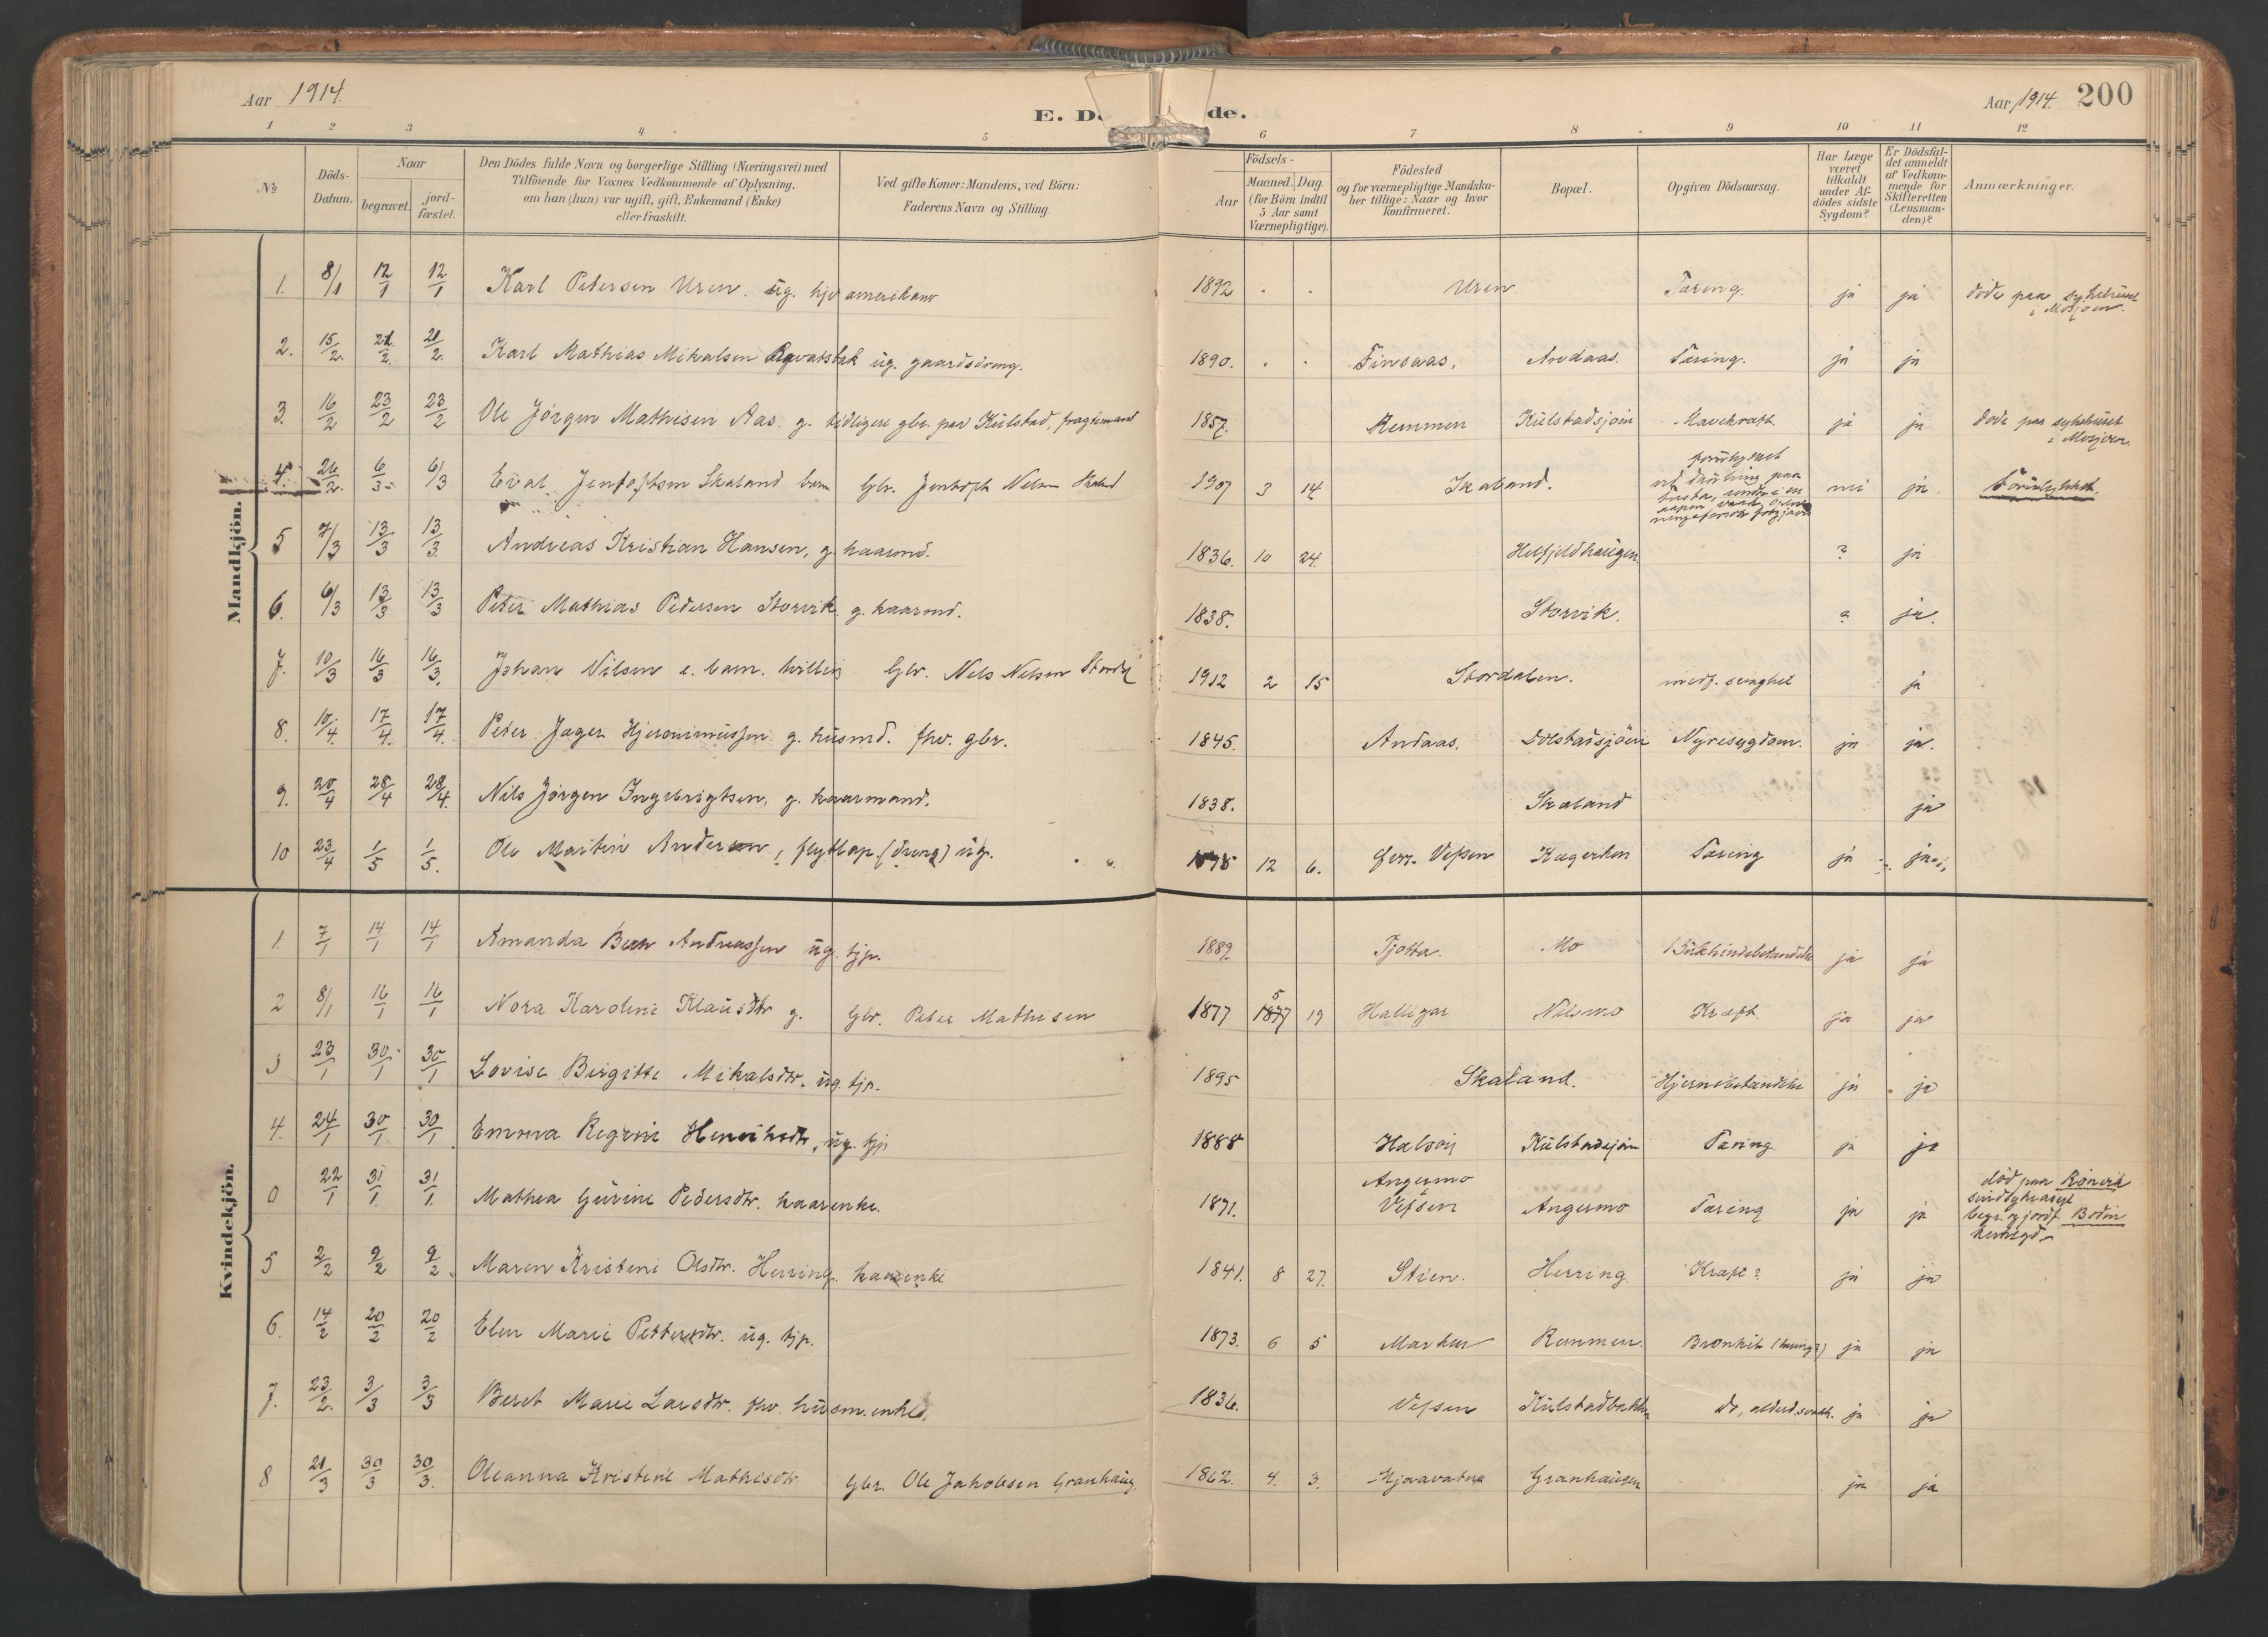 Aar 1914.
E. D de.
Aar 1914. 200
1 2 3 4 5 6 7 8 9 10 11 12
No
Döds-Datum.
Naar
begravet.
jord-fæstet.
Den Dödes fulde Navn og borgerlige Stilling (Næringsvei) med
Tilföiende for Voxnes Vedkommende af Oplysning,
om han (hun) var ugift, gift, Enkemand (Enke)
eller fraskilt.
Ved gifte Koner: Mandens, ved Börn:
Faderens Navn og Stilling.
Födsels-
Aar
Maaned. Dag.
(for Börn indtil
5 Aar samt
Værnepligtige).
Födested
og for værnepligtige Mandska-
ber tillige: Naar og hvor
konfirmeret.
Bopæl.
Opgiven Dödsaarsag.
Har Læge
været
tilkaldt
under Af-
dödes sidste
Sygdom?
Er Dödsfal-
det anmeldt
af Vedkom-
mende for
Skifteretten
(Lensman-
den)?
Anmærkninger.
Mandkjön.
1. 8/1 12/1 12/1 Karl Petersen Uren. ug. hjv amerikaner 1892 Uren Tæring. ja ja döde paa sykehuset
i Mosjøen.
2. 15/2. 21/2 21/2. Karl Mathias Mikalsen ug. gaardsdreng. 1890. Finsaas. Andaas. Tæring. ja ja
3. 16/2 23/2 23/2 Ole Jörgen Mathisen Aas. g. tidligere gbr. paa Kulstad, fragtemand 1857. Remmen Kulstadsjøen Mavekræft. ja ja döde paa sykehuset
i Mosjøen.
4. 26/2. 6/3 6/3 Eval Jentoftsen Skaland barn Gbr. Jentoft Nelsen Skaland 1907 3 14 Skaland. forulykket
ved drukning paa
nei ja Forulykket.
5 7/3 13/3 13/3. Andreas Kristian Hansen, g. kaarmd. 1836. 10 24. Helfjeldhaugen. ? ja
6. 6/3 13/3 13/3 Peter Mathias Pedersen Storvik g. kaarmd. 1838. Storvik. ? ja.
7. 10/3 16/3 16/3. Johan Nilsen e. barn. tvilling Gbr. Nels Nelsen Stordal 1912 2 15 Stordalen. medf. svaghet ja
8. 10/4. 17/4. 17/4. Peter Jager Hjeronimussen g. husmd. fhv. gbr. 1845. Andaas. Dolstadsjöen Nyresygdom. ja ja.
9. 20/4 28/4 28/4. Nils Jörgen Ingebrigtsen, g. kaarmand. 1838. Skaland ja
10 23/4 1/5 1/5. Ole Martin Andersen, flytlap. (dreng) ug. 1898 12 6. Vefsen Tæring ja ja
Kvindekjön.
1. 7/1 14/1 14/1 Amanda Andreassen ug. tjp. 1889. Tjøtta. Mo Bukhindebetændelse ja ja
2 8/1 16/1 16/1 Nora Karoline Klausdtr g. Gbr. Peter Mathisen 1877 5 1877 19 Nilsmo Kræft. ja ja
3 23/1 30/1 30/1 Lovise Birgitte Mikalsdtr. ug. tjp. 1895 Skaland. Hjernebetændelse ja ja
4. 24/1 30/1 30/1 Emma Regine Henriksdtr, ug. tjp 1888 Halsøy Kulstadsjøen Tæring ja ja
0 22/1 31/1. 31/1. Mathea Gurine Pedersdtr. kaarenke. 1871. Angermo
i Vefsen Angermo Tæring ja ja död paa Rønvik
sindsykeasyl
begr. og jordf. Bodin
kirkegd.
5 2/2 9/2 9/2. Maren Kristine Olsdtr. Herring. kaarenke 1841. 8 27. Stien. Herring. Kræft? ja ja
6. 14/2 20/2 20/2 Elen Marie Pettersdtr. ug. tjp. 1873. 6 5 Remmen. Bronkit (tæring?) ja ja
7. 23/2. 3/3 3/3 Beret Marie Larsdtr. fhv. husm.enke. 1836. Vefsen Kulstadbakken do, alderd.svakh. ja ja
8 21/3 30/3 30/3. Oleanna Kristine Mathisdtr Gbr. Ole Jakobsen Granhaug. 1862. 4. 3. Granhaugen ja ja